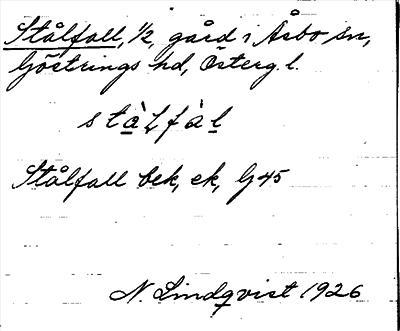 Stålfall, 1/2, gård i Åsbo sn,
Göstrings hd, Österg. l.
stà̲Lfàl̲
Stålfall bek, ek, G 45
N. Lindqvist 1926